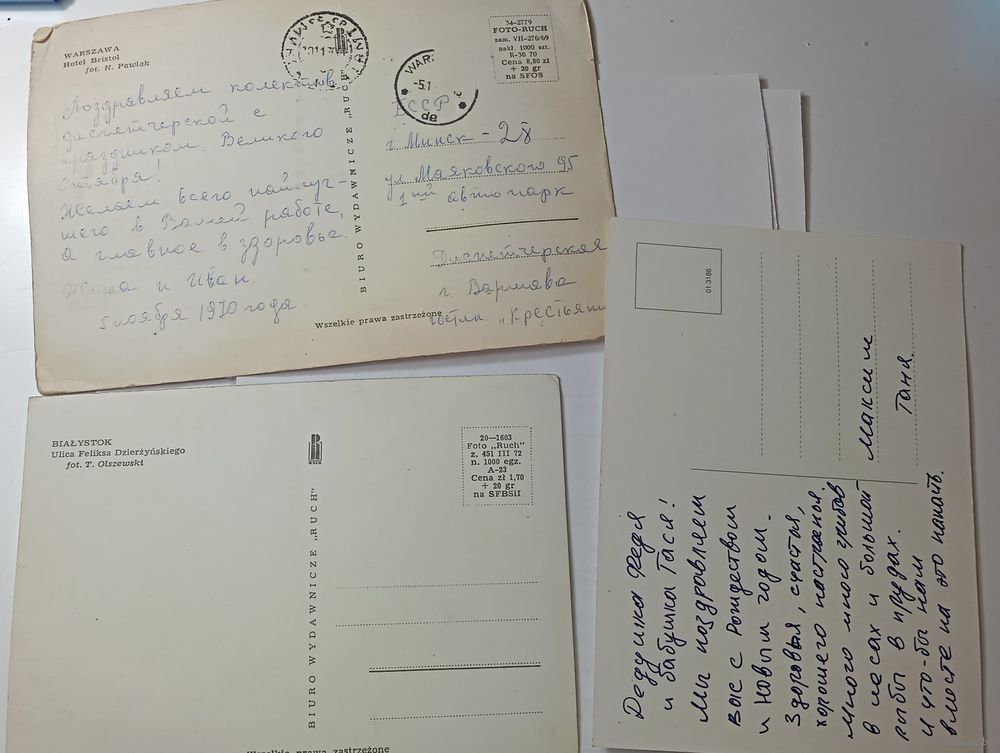 WARSZAWA
Hotel Bristol
fot. H. Pawlak
34-2779
FOTO-RUCH
zam. VII-276/69
nakł. 1000 szt.
K-50 70
Cena 0,80 zł
+ 20 gr
na SFOS
WAR
-5.1
Поздравляем колектив
диспетчерской с
праздником Великого
Октября!
Желаем всего найлуч-
шего в Вашей работе,
а главное в здоровье.
Жора и Иван.
5 ноября 1970 года.
BIURO WYDAWNICZE „RUCH"
БССР
г. Минск - 28
ул Маяковского 95
1ый автопарк
Диспетчерская
г. Варшава
гостин. „Крестьян
Wszelkie prawa zastrzeżone
BIAŁYSTOK
Ulica Feliksa Dzierżyńskiego
fot. T. Olszewski
RUCH
20—1603
Foto „Ruch"
z. 451 III 72
n. 1000 egz.
A-23
Cena zł 1,70
+ 20 gr
na SFBSiI
BIURO WYDAWNICZE „RUCH"
Wszelkie prawa zastrzeżone
01 3166
Дедушка Федя
и бабушка Тася!
Мы поздравляем
вас с Рождеством
и Новым годом.
Здоровья, счастья,
хорошего настроенья.
Много много грибов
в лесах и большой
рыбы в прудах.
И что-бы нам
вместе на это попасть.
Максим
Таня